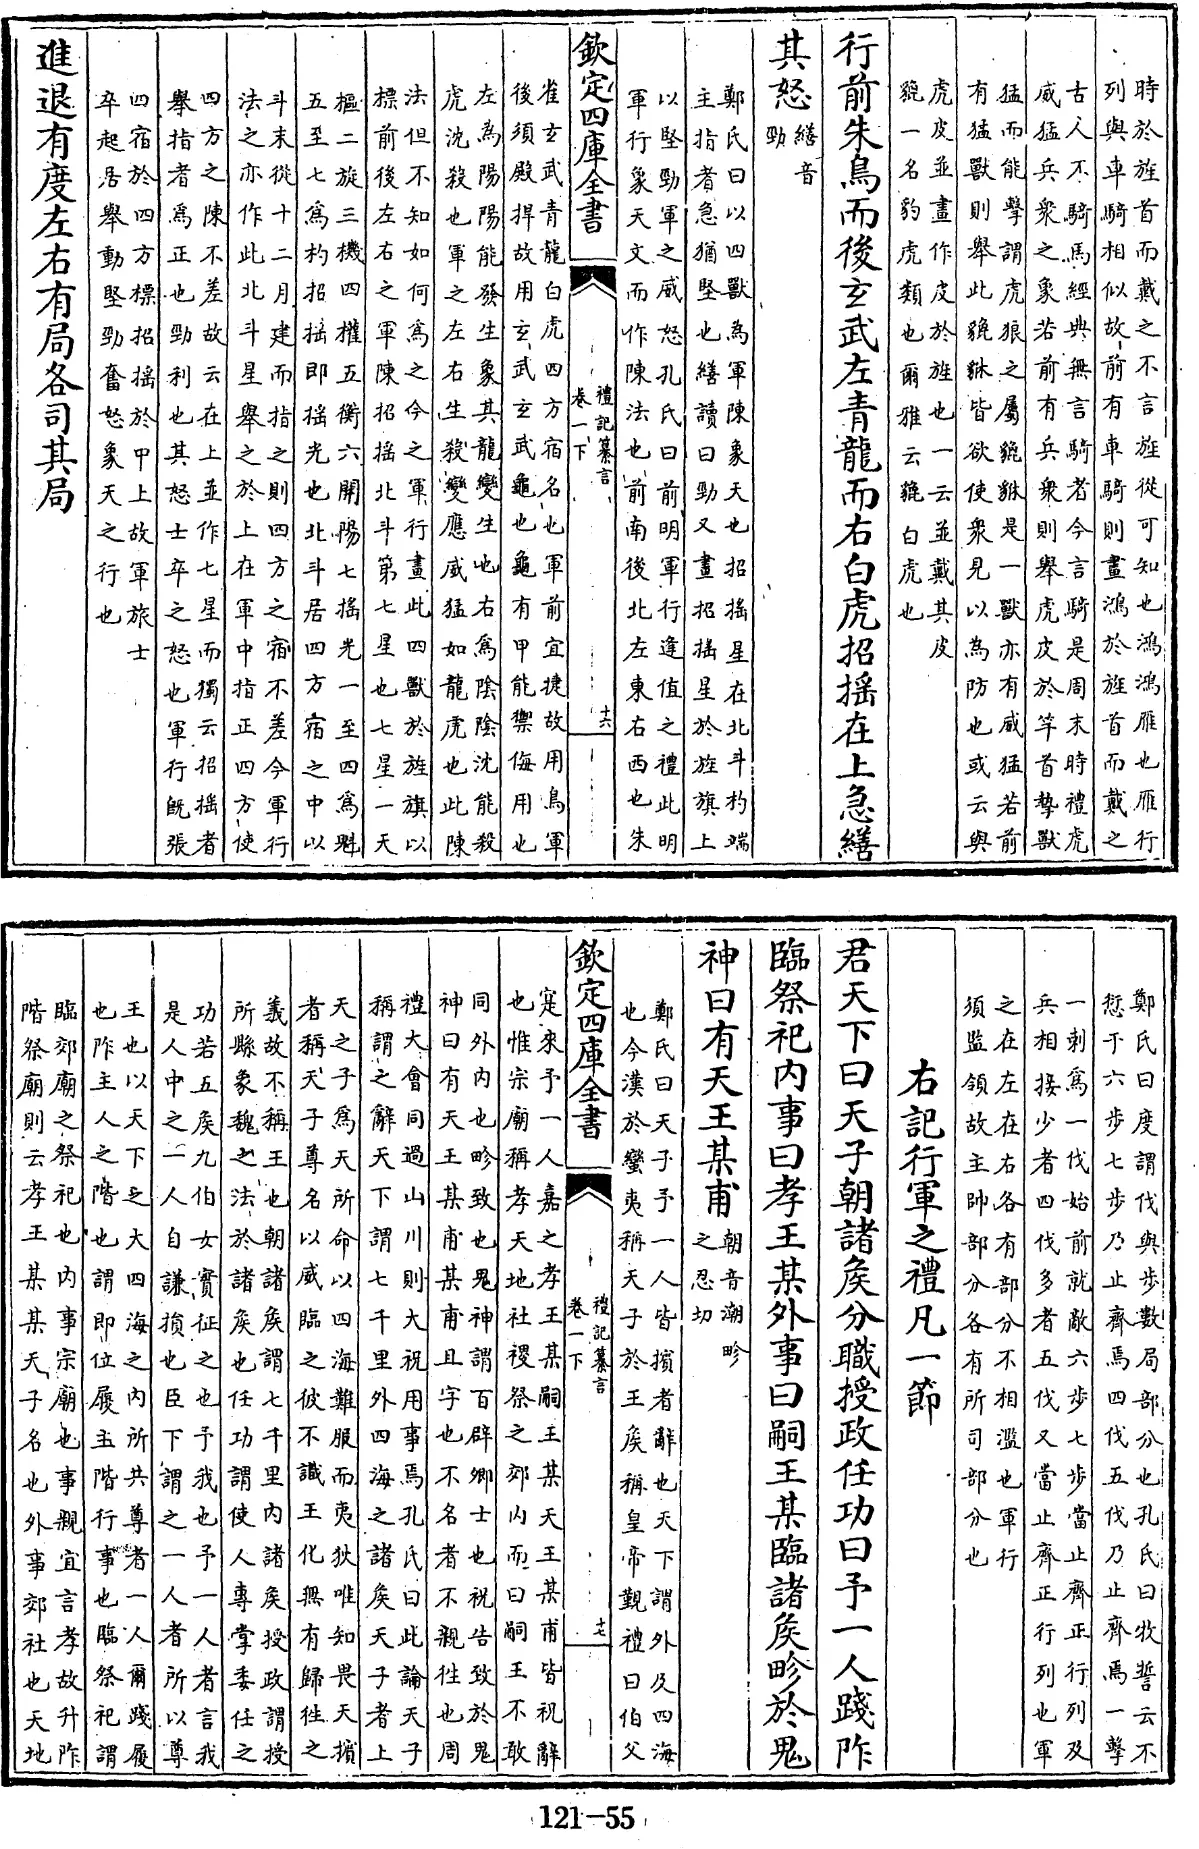 時於旌首而戴之不言旌從可知也鴻鴻雁也雁行
列與車騎相似故前有車騎則畫鴻於旌首而戴之
古人不騎馬經典無言騎者今言騎是周末時禮虎
威猛兵衆之象若前有兵衆則舉虎皮於竿首摯獸
猛而能擊謂虎狼之屬貔貅是一獸亦有威猛若前
有猛獸則舉此貔貅皆欲使衆見以為防也或云與
虎皮並畫作皮於旌也一云並戴其皮
貔一名豹虎類也爾雅云貔白虎也
行前朱鳥而後玄武左青龍而右白虎招搖在上急繕
其怒
繕音
勁
鄭氏曰以四獸為軍陳象天也招搖星在北斗杓端
主指者急猶堅也繕讀曰勁又畫招搖星於旌旗上
以堅勁軍之威怒孔氏曰前明軍行逢值之禮此明
軍行象天文而作陳法也前南後北左東右西也朱
欽定四庫全書
禮記纂言
卷一下
十六
雀玄武青龍白虎四方宿名也軍前宜捷故用鳥軍
後須殿捍故用玄武玄武龜也龜有甲能禦侮用也
左為陽陽能發生象其龍變生也右為陰陰沈能殺
虎沈殺也軍之左右生殺變應威猛如龍虎也此陳
法但不知如何為之今之軍行畫此四獸於旌旗以
標前後左右之軍陳招搖北斗第七星也七星一天
樞二旋三機四權五衡六開陽七搖光一至四為魁
五至七為杓招搖即搖光也北斗居四方宿之中以
斗末從十二月建而指之則四方之宿不差今軍行
法之亦作此北斗星舉之於上在軍中指正四方使
四方之陳不差故云在上並作七星而獨云招搖者
舉指者為正也勁利也其怒士卒之怒也軍行既張
四宿於四方標招搖於中上故軍旅士
卒起居舉動堅勁奮怒象天之行也
進退有度左右有局各司其局
鄭氏曰度謂伐與步數局部分也孔氏曰牧誓云不
愆于六步七步乃止齊焉四伐五伐乃止齊焉一擊
一刺為一伐始前就敵六步七步當止齊正行列及
兵相接少者四伐多者五伐又當止齊正行列也軍
之在左在右各有部分不相濫也軍行
須監領故主帥部分各有所司部分也
右記行軍之禮凡一節
君天下曰天子朝諸矦分職授政任功曰予一人踐阼
臨祭祀內事曰孝王某外事曰嗣王某臨諸矦畛於鬼
神曰有天王某甫
朝音潮畛
之忍切
鄭氏曰天子予一人皆擯者辭也天下謂外及四海
也今漢於蠻夷稱天子於王矦稱皇帝覲禮曰伯父
欽定四庫全書
禮記纂言
卷一下
十七
寔來予一人嘉之孝王某嗣王某天王某甫皆祝辭
也惟宗廟稱孝天地社稷祭之郊內而曰嗣王不敢
同外內也畛致也鬼神謂百辟卿士也祝告致於鬼
神曰有天王某甫某甫且字也不名者不親往也周
禮大會同過山川則大祝用事焉孔氏曰此論天子
稱謂之辭天下謂七千里外四海之諸矦天子者上
天之子為天所命以四海難服而夷狄唯知畏天擯
者稱天子尊名以威臨之彼不識王化無有歸往之
義故不稱王也朝諸矦謂七千里內諸矦授政謂授
所縣象魏之法於諸矦也任功謂使人專掌委任之
功若五矦九伯女實征之也予我也予一人者言我
是人中之一人自謙損也臣下謂之一人者所以尊
王也以天下之大四海之內所共尊者一人爾踐履
也阼主人之階也謂即位履主階行事也臨祭祀謂
臨郊廟之祭祀也內事宗廟也事親宜言孝故升阼
階祭廟則云孝王某某天子名也外事郊社也天地
121-55